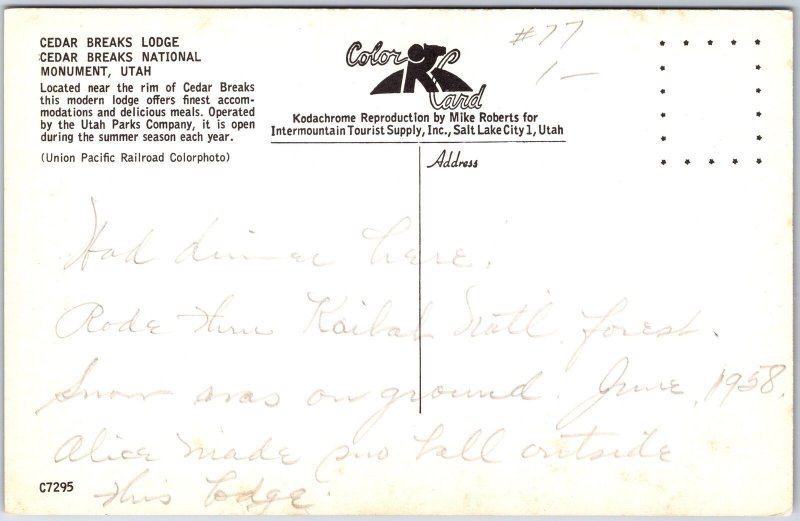 CEDAR BREAKS LODGE
CEDAR BREAKS NATIONAL
MONUMENT, UTAH
Located near the rim of Cedar Breaks
this modern lodge offers finest accom-
modations and delicious meals. Operated
by the Utah Parks Company, it is open
during the summer season each year.
(Union Pacific Railroad Colorphoto)
Color
Card
Kodachrome Reproduction by Mike Roberts for
Intermountain Tourist Supply, Inc., Salt Lake City 1, Utah
#77
1/-
Address
Had dinner here.
Rode thru Kaibab Nat'l. forest.
Snow was on ground. June, 1958.
Alice made sno ball outside
this lodge.
C7295